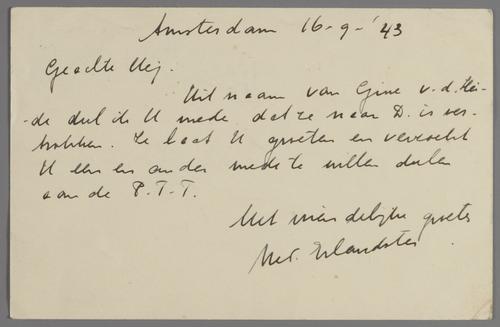 Amsterdam 16-9-'43
Geachte Mej.
Uit naam van Gine v.d. Hei-
-de deel ik U mede, dat ze naar D. is ver-
trokken. Ze laat U groeten en verzoekt
U een en ander mede te willen delen
aan de P.T.T.
Met vriendelijke groeten